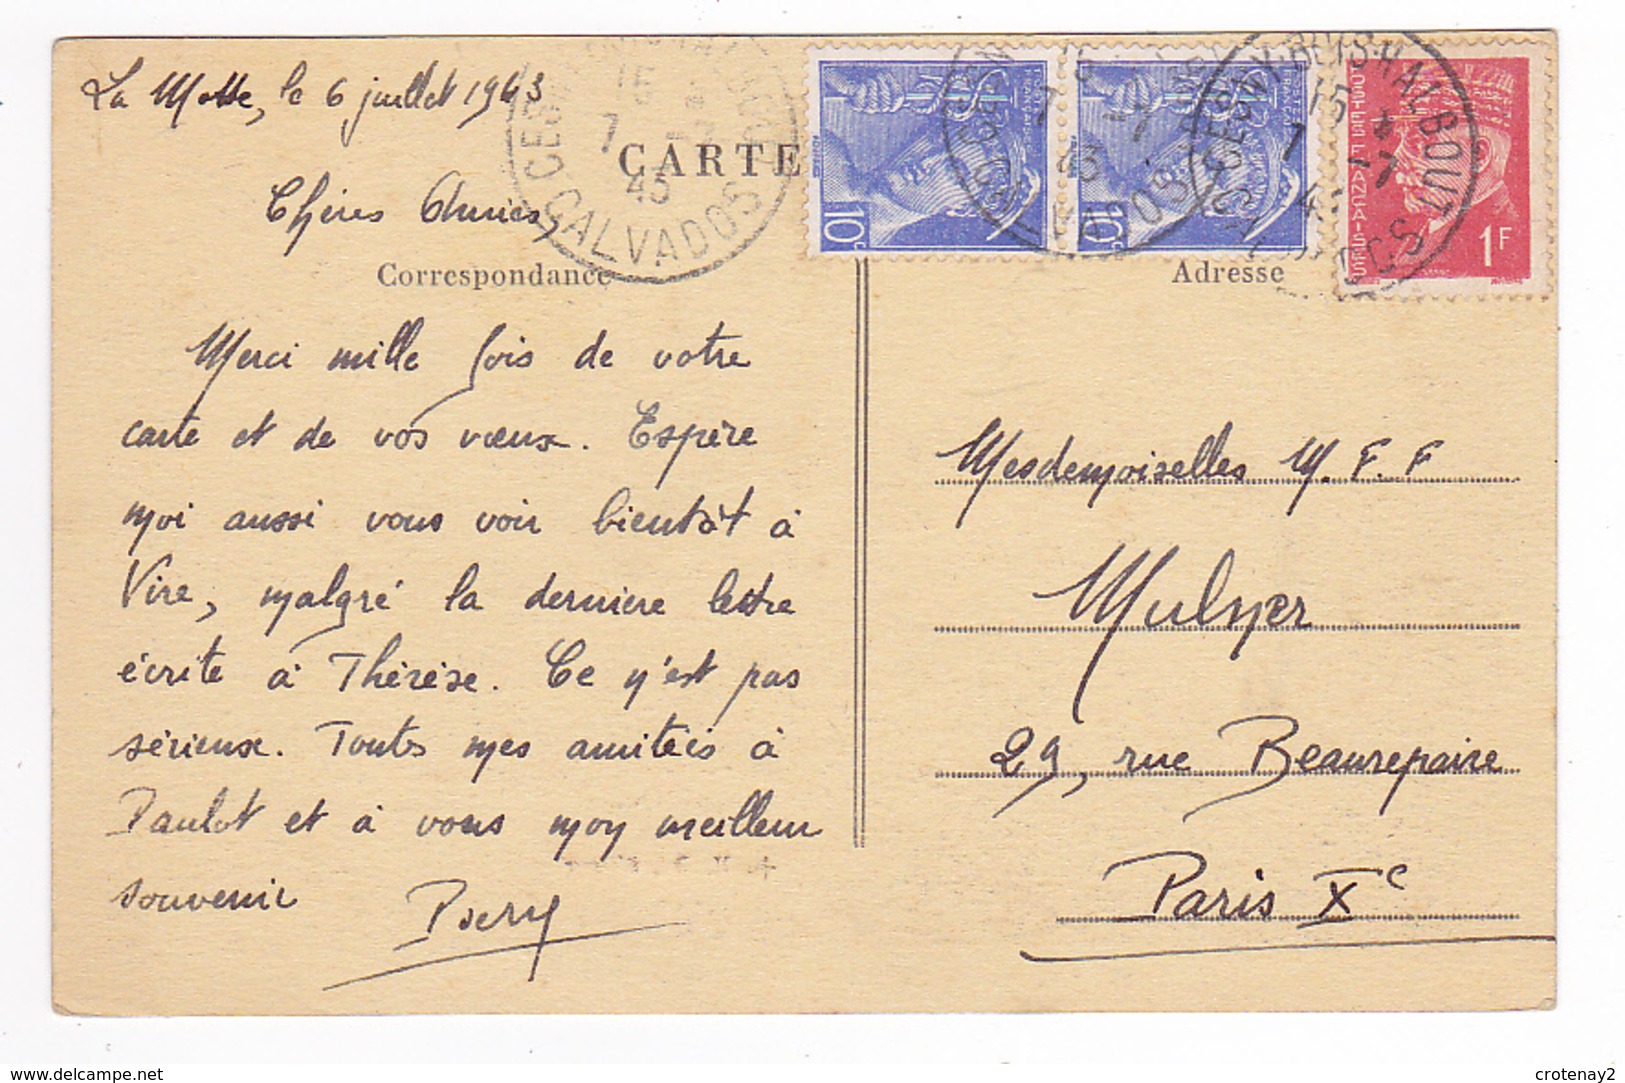 La Motte, le 6 juillet 1943
CARTE
Chères Amies,
Correspondance
Merci mille fois de votre
carte et de vos vœux. Espère
moi aussi vous voir bientôt à
Vire, malgré la dernière lettre
écrite à Thérèse. Ce n'est pas
sérieux. Toutes mes amitiés à
Paulot et à vous mon meilleur
souvenir
CERISY-BOIS-HALBOUT
15
7 -7
43
CALVADOS
10c
10c
POSTES FRANÇAISES
1F
Adresse
Mesdemoiselles M. F. F
Mulner
29, rue Beaurepaire
Paris Xe
www.delcampe.net
crotenay2